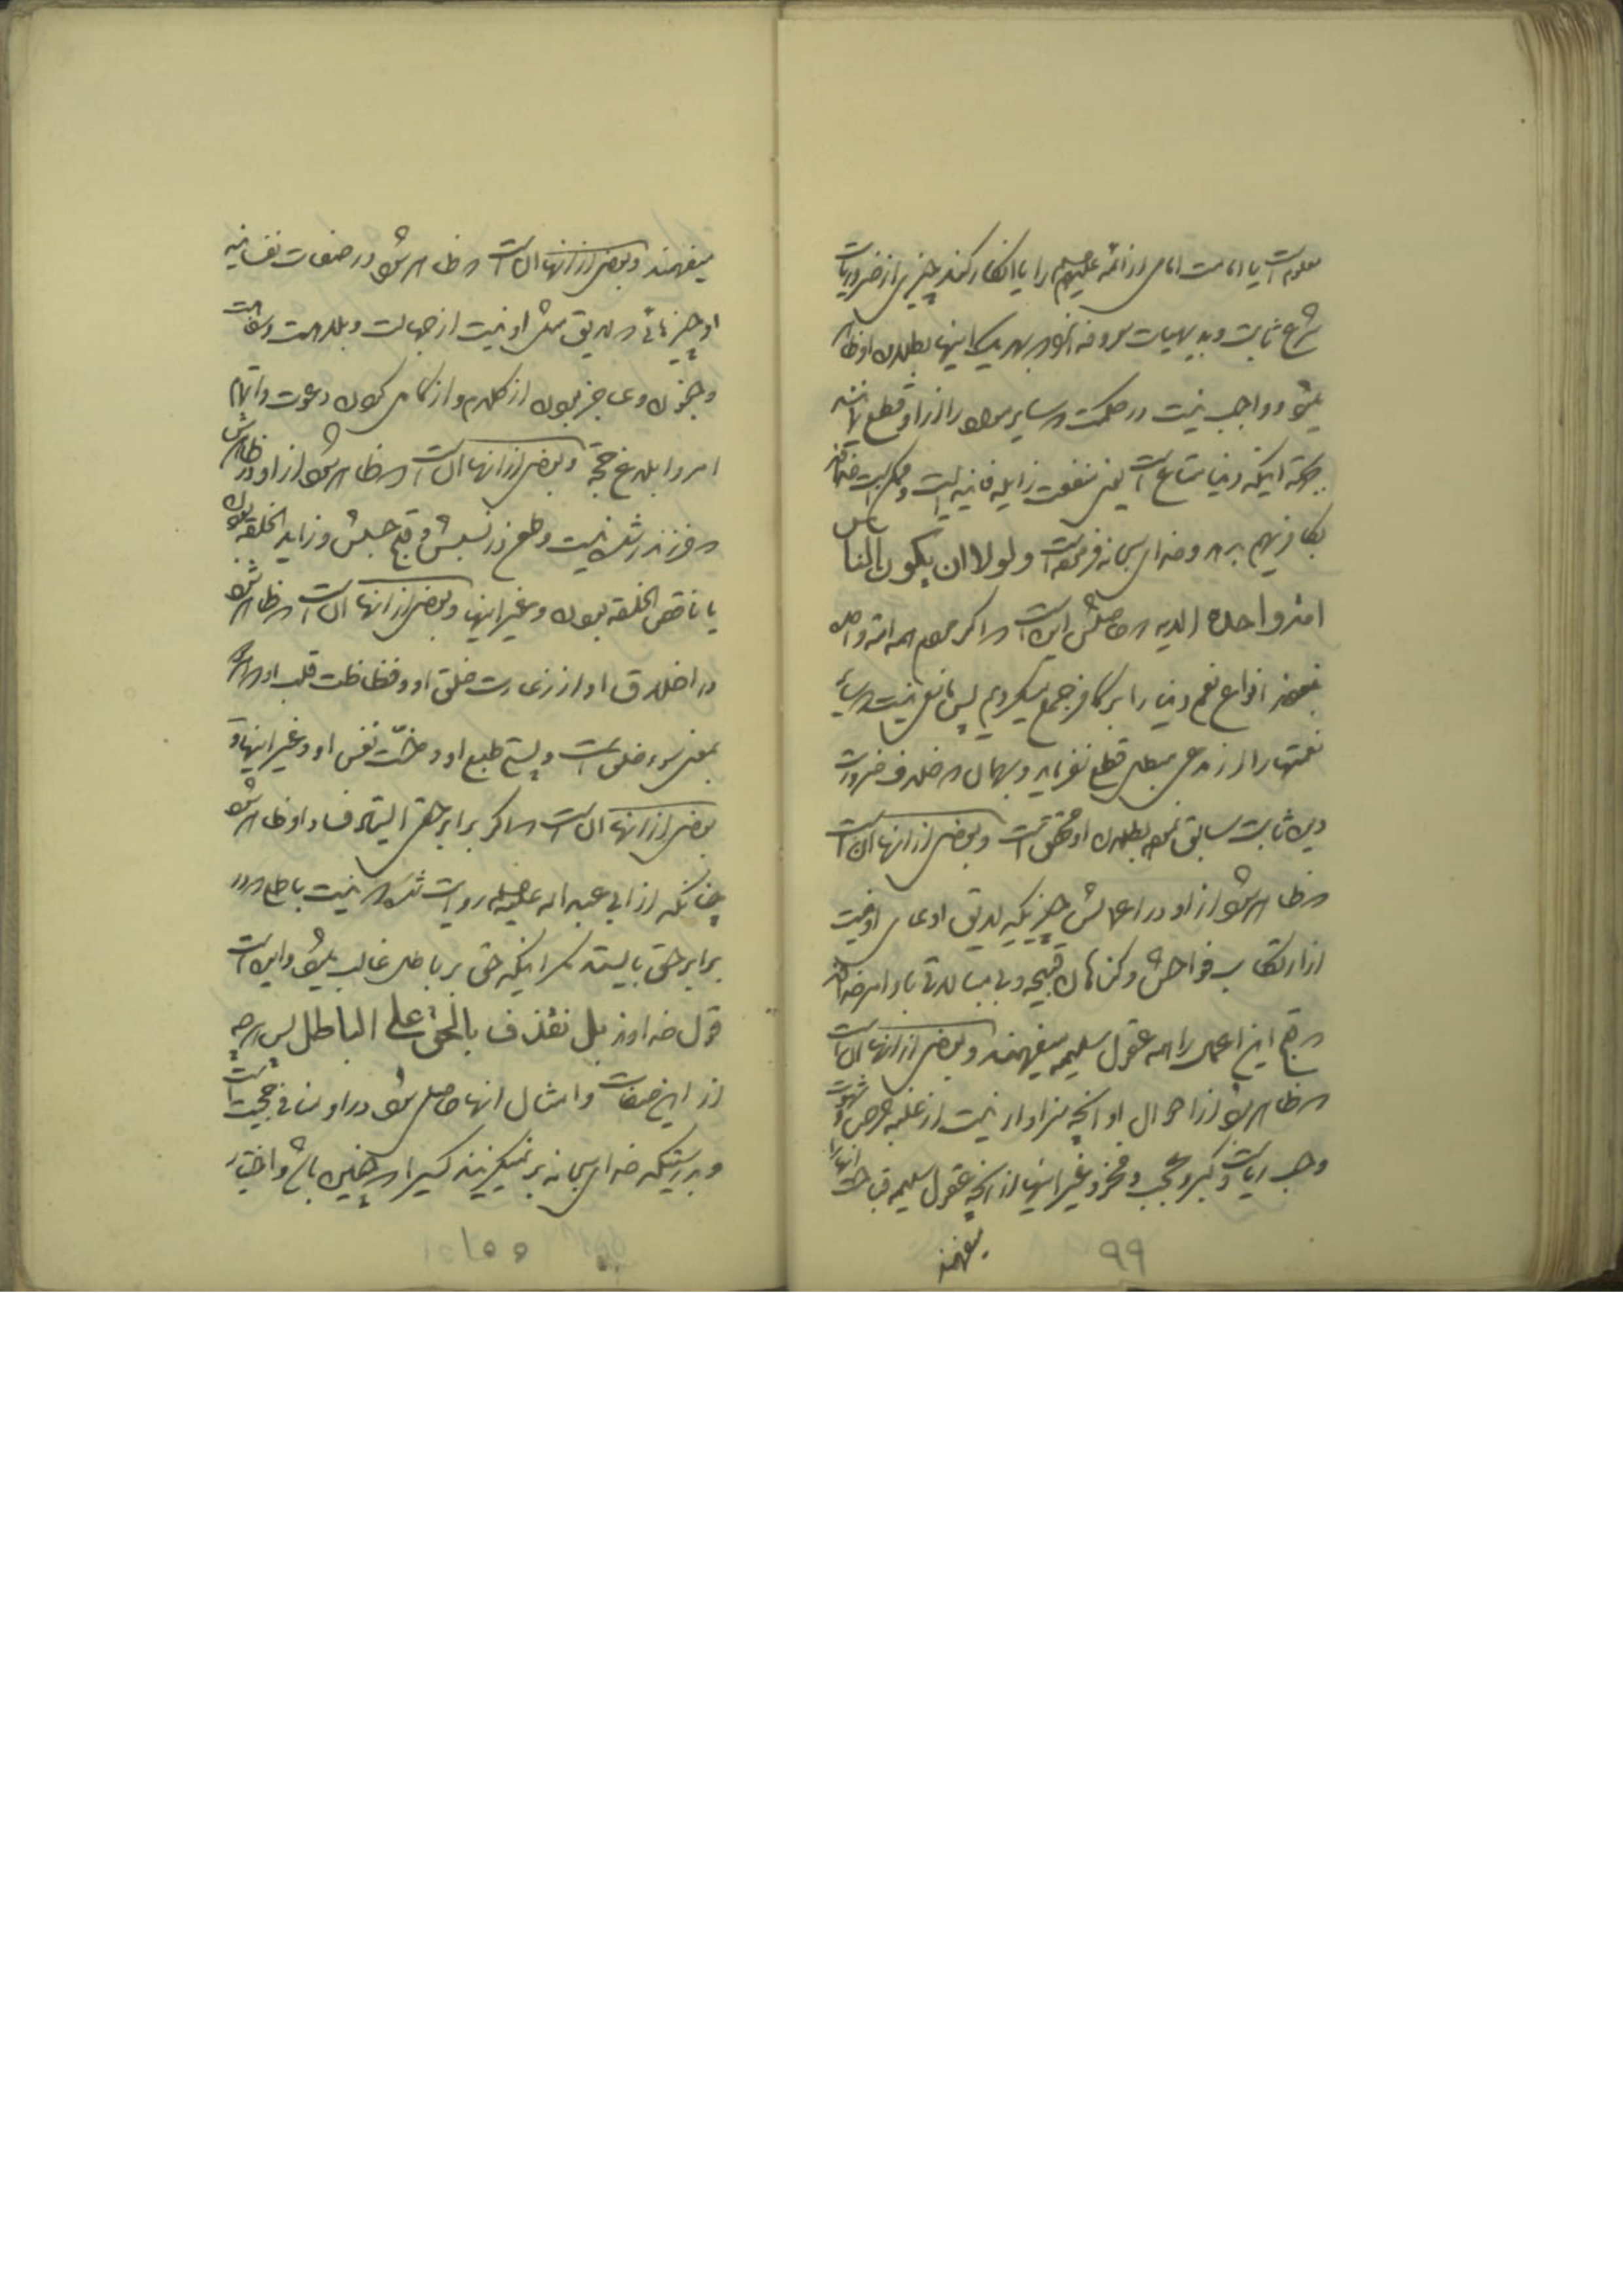 معلوم است یا امامت امامی از ائمه علیهم السلام را یا انکار کند چیزی از ضروریات
شرع ثابت و بدیهیات معروفه آنرا که بهر یک اینها بطلان او ظاهر
میشود و واجب نیست در حکمت که سایر مواد را از او قطع نماید
بجهة اینکه دنیا متاع است یعنی منفعت زایله فانیه است و ممکن است خداوند
بکافر هم بدهد و خدای سبحانه فرموده است ولولا ان یکون الناس
امة واحدة الایه که حاصلش این است که اگر مردم همه امة واحده
نمیبودند انواع نعم دنیا را بر کافر جمع میکردیم پس مانعی نیست که سایر
نعمتها را از مدعی مبطل قطع نفرماید و بهمان که خلاف ضرورت
دین ثابت سابق نمود بطلان او محقق است و بعضی از آنها آن است
که ظاهر شود از او در اعمالش چیزیکه لایق ادعای او نیست
از ارتکاب فواحش و گناهان قبیحه و بی مبالاتی باوامر خداوند
که قبح این اعمال را همه عقول سلیمه میفهمند و بعضی از آنها آن است
که ظاهر شود از احوال او آنچه سزاوار نیست از غلبه حرص و شهوت
و حب ریاست و کبر و عجب و فخر و غیر اینها از آنچه عقول سلیمه قباحت آنها را
میفهمند
۹۹
میفهمند و بعضی از آنها آن است که ظاهر شود در صفات نفسانیه
او چیزهائی که لایق مثل او نیست از جهالت و بلاهت و سفاهت
و جنون و عاجز بودن از کلام و از کامل کردن دعوت و اتمام
امر و ابلاغ حجة و بعضی از آنها آن است که ظاهر شود از او در ظاهرش
که فرزند رشد نیست و طعن در نسبش و قبح جبلش و زاید الخلقه بودن
یا ناقص الخلقه بودن و غیر اینها و بعضی از آنها آن است که ظاهر شود
در اخلاق او از زعارت خلق او و فظاظت قلب او که
بمعنی سوء خلق است و پستی طبع او و خسّت نفس او و غیر اینها و
بعضی از آنها آن است که اگر برابر حقی ایستاد فساد او ظاهر شود
چنانکه از ابی عبد اله علیه السلام روایت شده که نیست باطلی که در
برابر حق بایستد مگر اینکه حق بر باطل غالب میشود و این است
قول خداوند بل نقذف بالحق علی الباطل پس هر چه
از این صفات و امثال آنها حاصل شود در او منافی حجیت است
و بدرستیکه خدای سبحانه بر نمیگزیند کسی را که چنین باشد و اختیار
۱۰۰